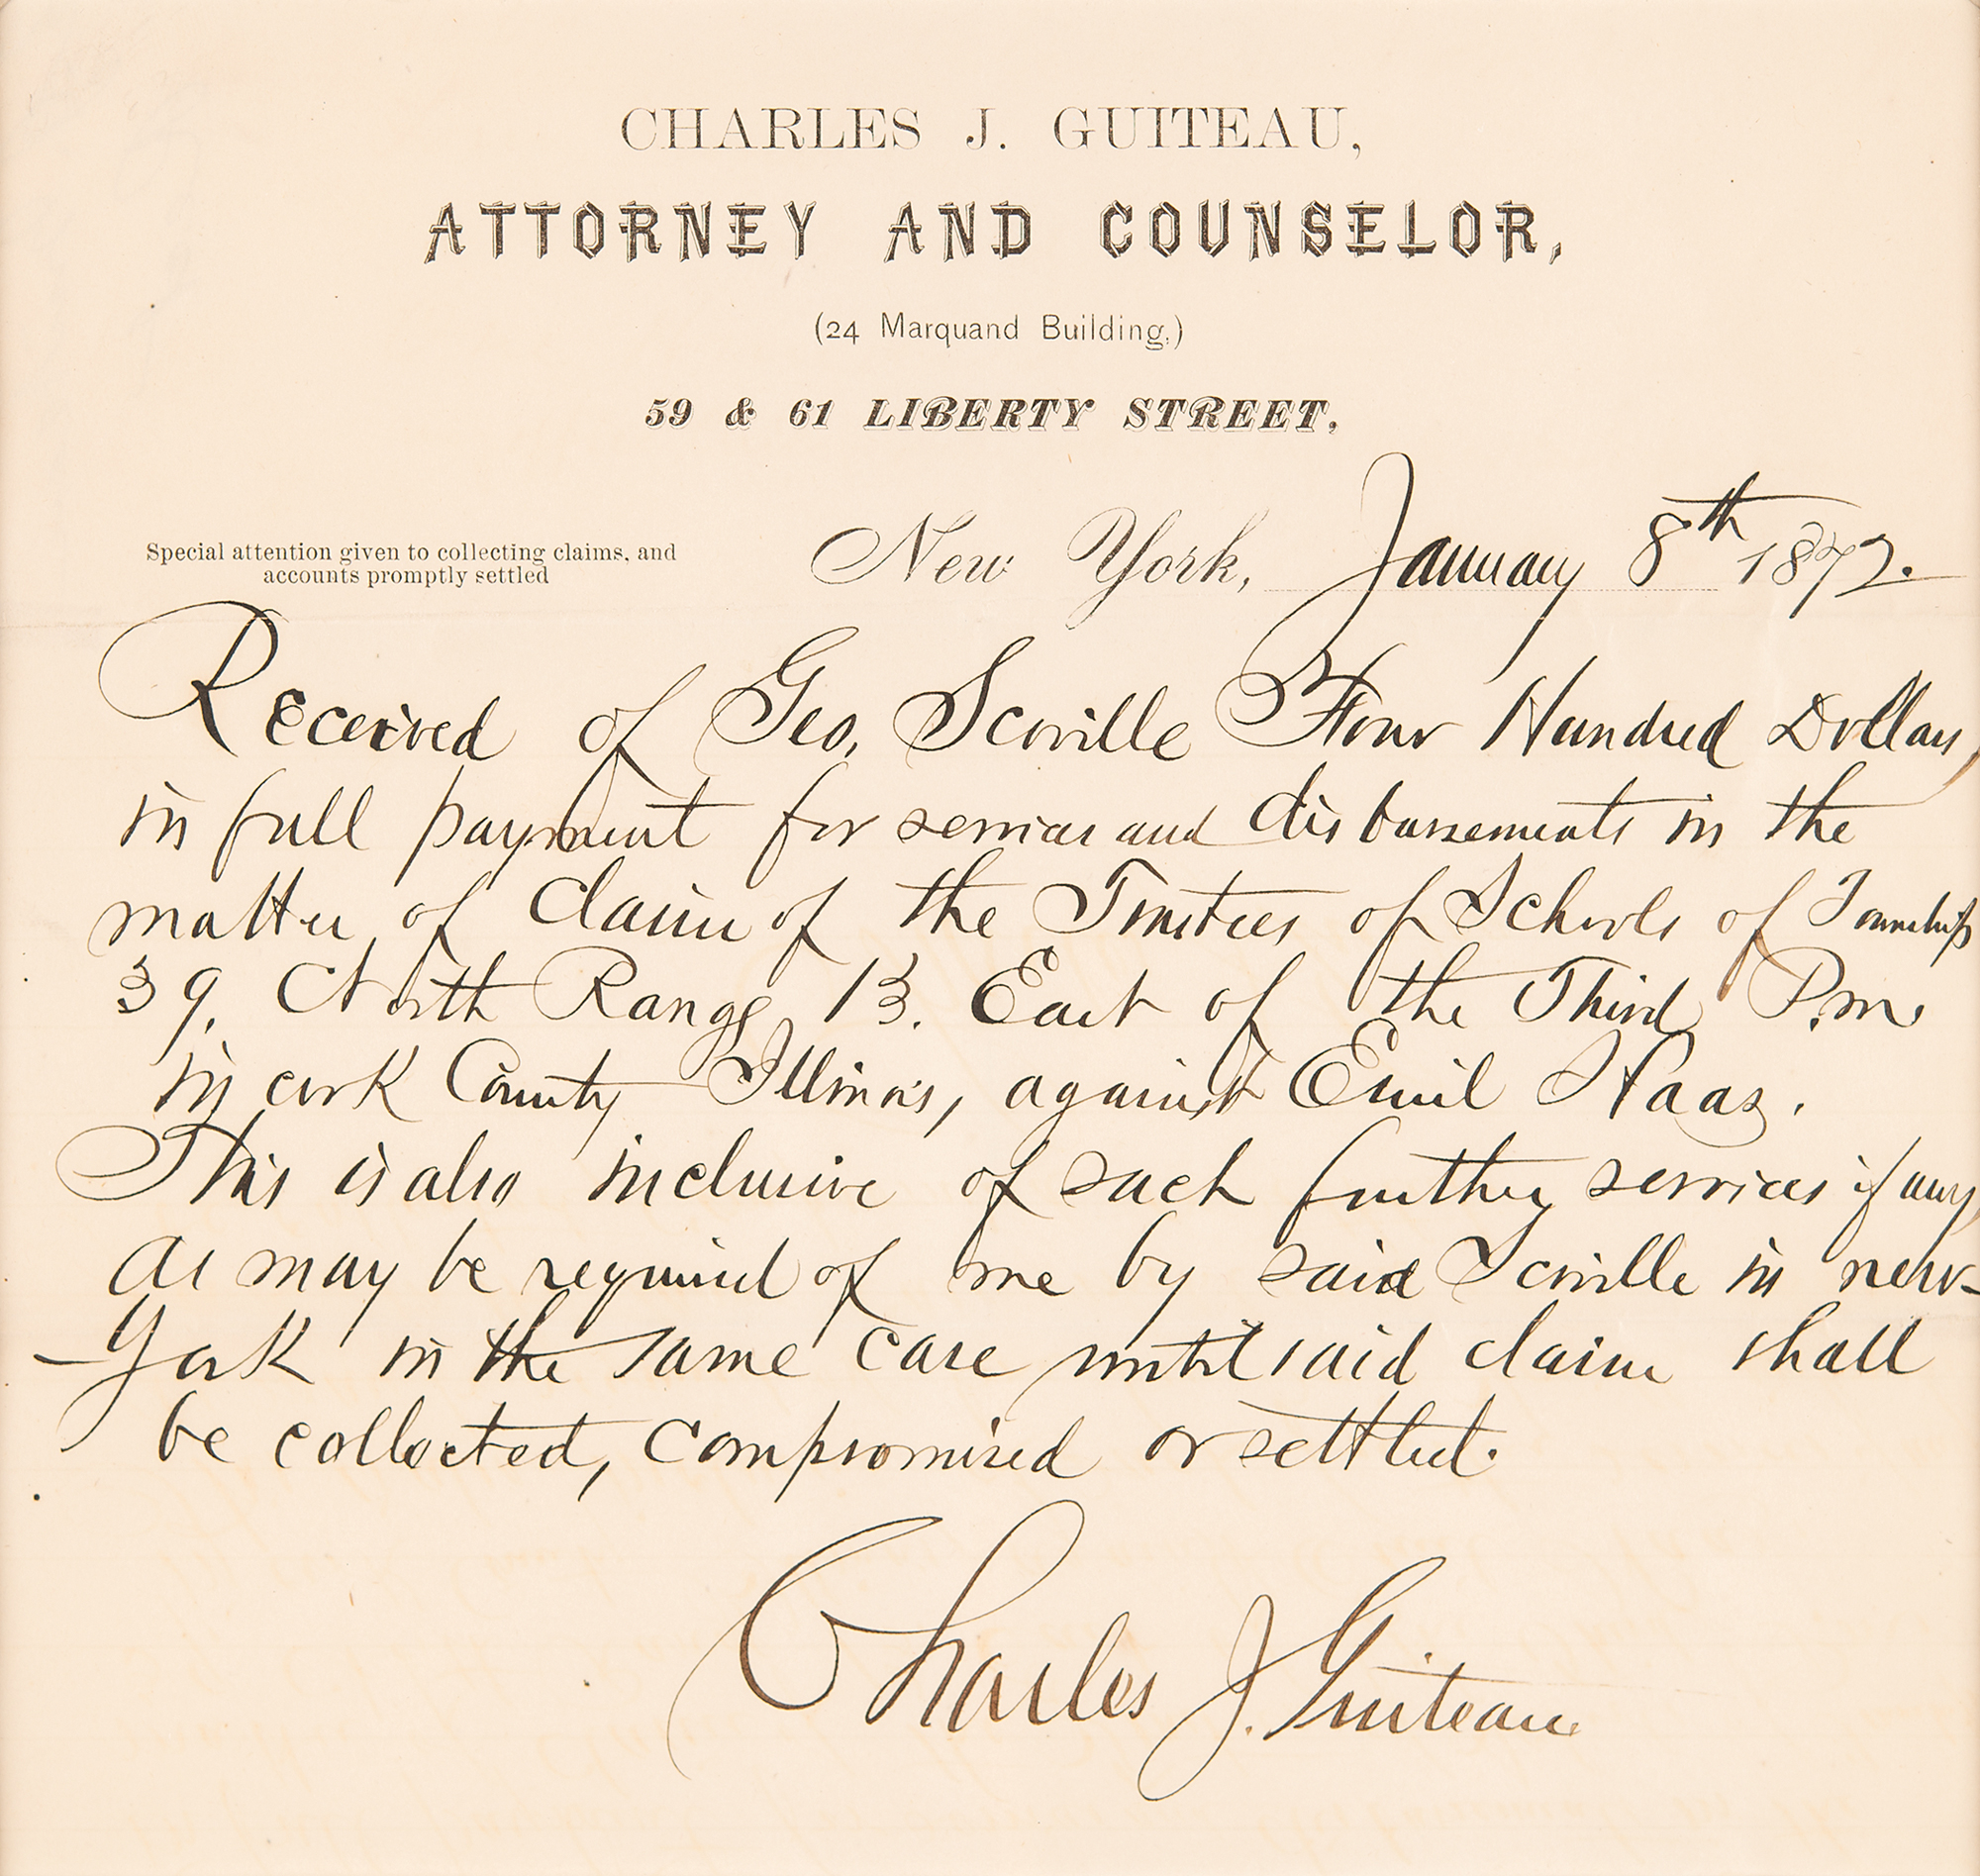 CHARLES J. GUITEAU,
ATTORNEY AND COUNSELOR,
(24 Marquand Building,)
59 & 61 LIBERTY STREET,
Special attention given to collecting claims, and
accounts promptly settled
New York, January 8th 1872.
Received of Geo. Scoville Four Hundred Dollars,
in full payment for services and disbursements in the
matter of claim of the Trustees of Schools of Township
39, North Range 13. East of the Third P.m.
in cook County Illinois, against Emil Haas.
This is also inclusive of such further services if any
as may be required of me by said Scoville in new-
-York in the same case until said claim shall
be collected, compromised or settled.
Charles J. Guiteau